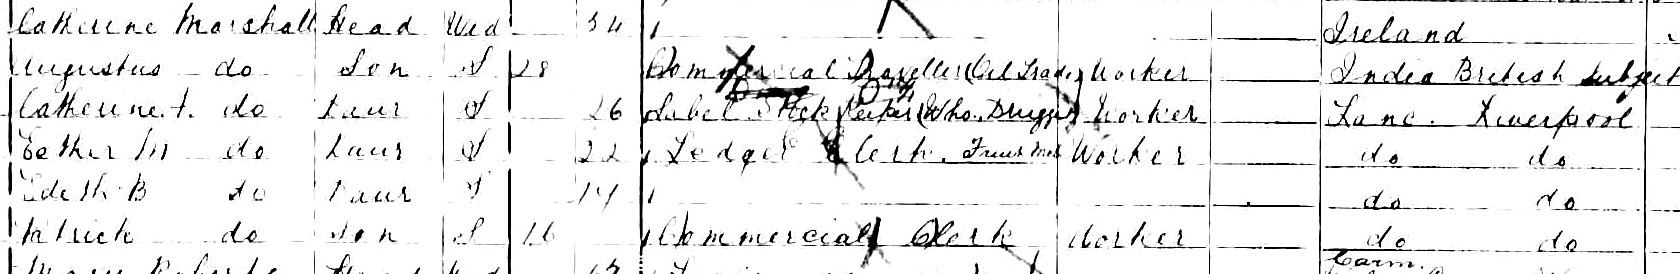 Catherine Marshall Head Wid 54 Ireland
Augustus do Son S 28 Commercial Traveller (Oil Trade) Worker India British Subject
Catherine A. do Daur S 26 Label Stock Keeper (Who. Druggist) Worker Lanc. Liverpool
Esther M do Daur S 22 Ledger Clerk. Worker do do
Edith B do Daur S 19 do do
Patrick do Son S 16 Commercial Clerk Worker do do
Roberts Head